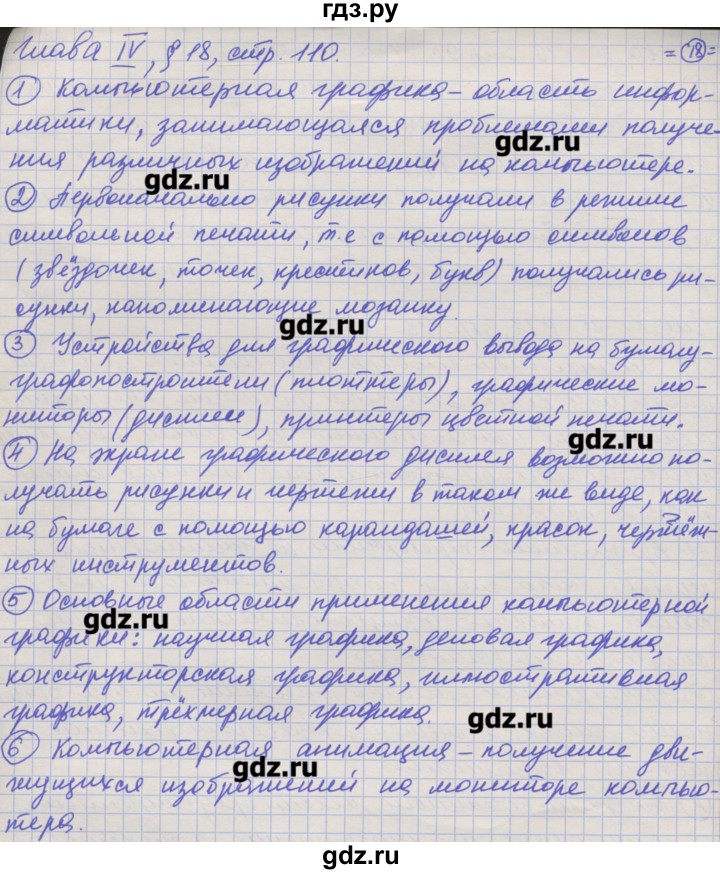 гдз.ру
Глава IV, § 18, стр. 110. = 18 =
1 Компьютерная графика – область инфор-
матики, занимающаяся проблемами получе-
ния различных изображений на компьютере.
gdz.ru
gdz.ru
2 Первоначально рисунки получали в режиме
символьной печати, т.е с помощью символов
(звёздочек, точек, крестиков, букв) получались ри-
сунки, напоминающие мозаику.
gdz.ru
3 Устройства для графического вывода на бумагу-
графопостроители (плоттеры), графические мо-
ниторы (дисплеи), принтеры цветной печати.
gdz.ru
4 На экране графического дисплея возможно по-
лучать рисунки и чертежи в таком же виде, как
на бумаге с помощью карандашей, красок, чертёж-
ных инструментов.
5 Основные области применения компьютерной
gdz.ru
графики: научная графика, деловая графика,
конструкторская графика, иллюстративная
графика, трёхмерная графика.
gdz.ru
6 Компьютерная анимация – получение дви-
gdz.ru
жущихся изображений на мониторе компью-
тера.
gdz.ru